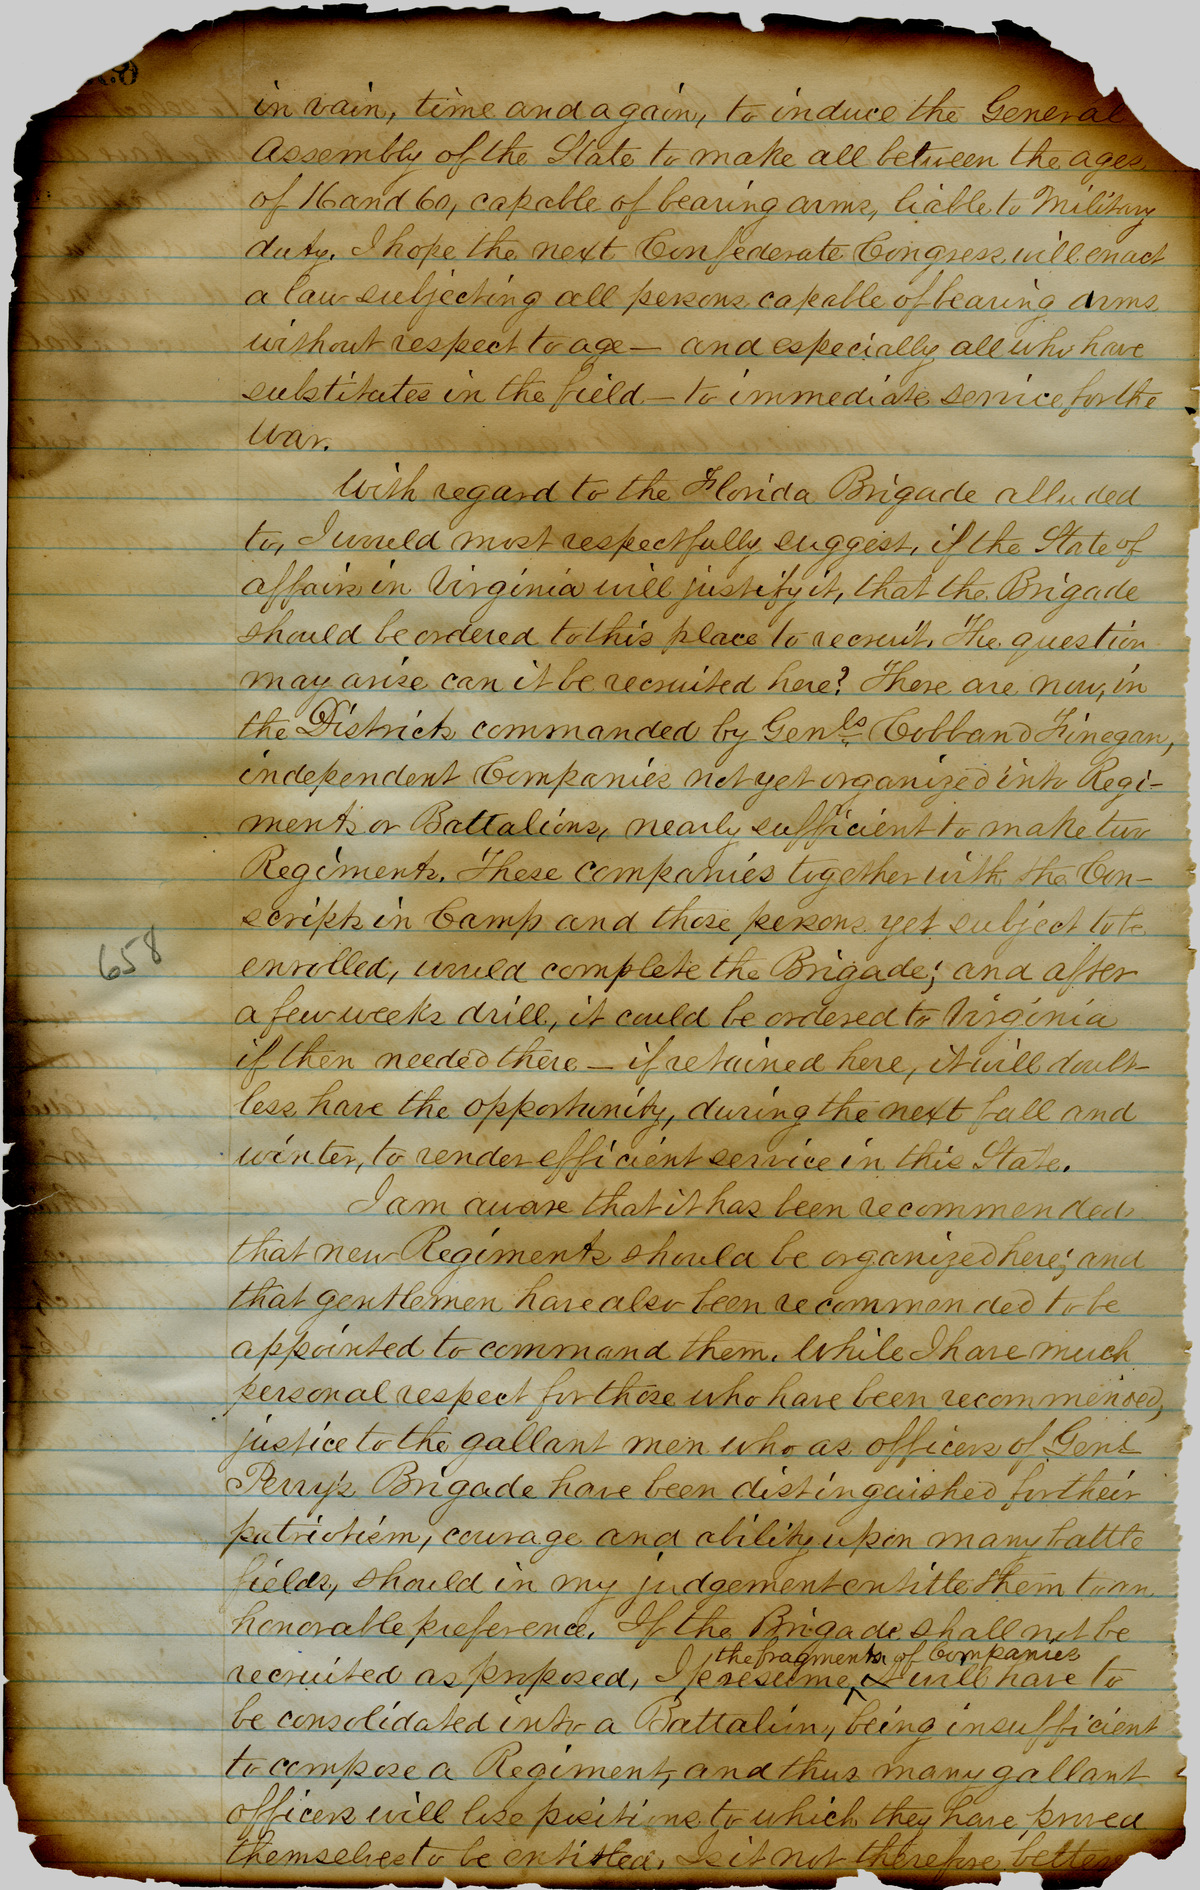 in vain, time and again, to induce the General
Assembly of the State to make all between the ages
of 16 and 60, capable of bearing arms, liable to Military
duty. I hope the next Confederate Congress will enact
a law subjecting all persons capable of bearing arms
without respect to age — and especially all who have
substitutes in the field — to immediate service for the
war.
With regard to the Florida Brigade alluded
to, I would most respectfully suggest, if the State of
affairs in Virginia will justify it, that the Brigade
should be ordered to this place to recruit. The question
may arise can it be recruited here? There are now, in
the Districts commanded by Genls Cobb and Finegan,
independent Companies not yet organized into Regi-
ments or Battalions, nearly sufficient to make two
Regiments. These companies together with the Con-
scripts in Camp and those persons yet subject to be
658
enrolled, would complete the Brigade; and after
a few weeks drill, it could be ordered to Virginia
if then needed there — if retained here, it will doubt-
less have the opportunity, during the next fall and
winter, to render efficient service in this State.
I am aware that it has been recommended
that new Regiments should be organized here; and
that gentlemen have also been recommended to be
appointed to command them. While I have much
personal respect for those who have been recommended,
justice to the gallant men who as officers of Genl
Perry's Brigade have been distinguished for their
patriotism, courage and ability upon many battle
fields, should in my judgement entitle them to an
honorable preference. If the Brigade shall not be
the fragments of Companies
recruited as proposed, I presume, will have to
be consolidated into a Battalion, being insufficient
to compose a Regiment, and thus many gallant
officers will lose positions to which they have proved
themselves to be entitled. Is it not therefore better